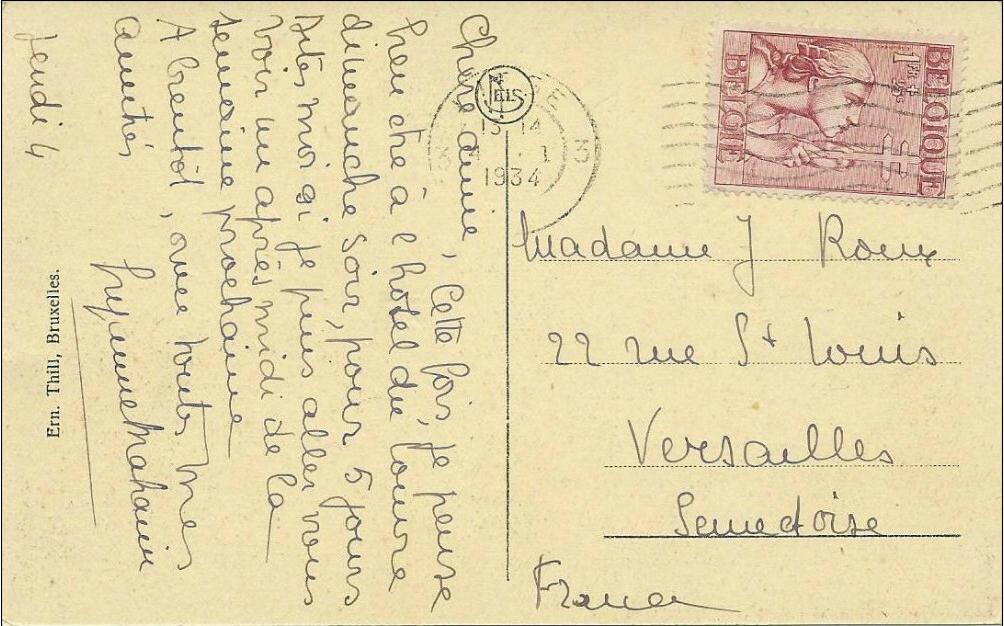 Chère amie, Cette fois, je pense
être à l'hotel du Louvre
dimanche soir, pour 5 jours
Dites moi si je puis aller vous
voir un après midi de la
semaine prochaine
A bientôt, avec toutes mes
amitiés
Jeudi 4
Ern. Thill, Bruxelles.
1934
BELGIQUE
BELGIE
Madame J Roux
22 rue St Louis
Versailles
Seine et Oise
France